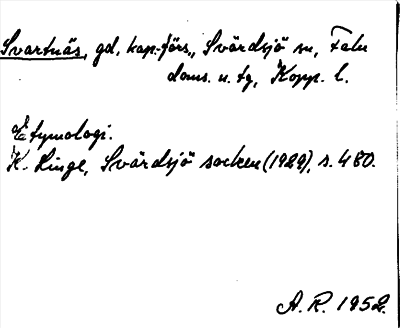 Svartnäs, gd, kap.förs., Svärdsjö sn, Falu
doms. u. tg, Kopp. l.
Etymologi.
K. Linge, Svärdsjö socken (1929), s. 480.
A. R. 1952.